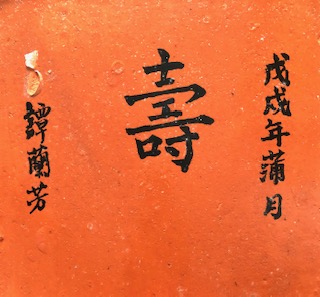 戊戌年蒲月
壽
譚蘭芳